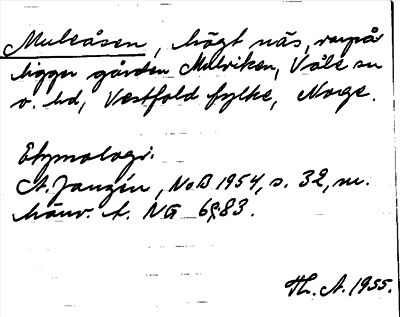 Muleåsen, högt näs, varpå
ligger gården Mulviken, Våle sn
o. hd, Vestfold fylke, Norge.
Etymologi.
A. Janzén, NoB 1954, s. 32, m.
hänv. t. NG 6:83.
Th. A. 1955.